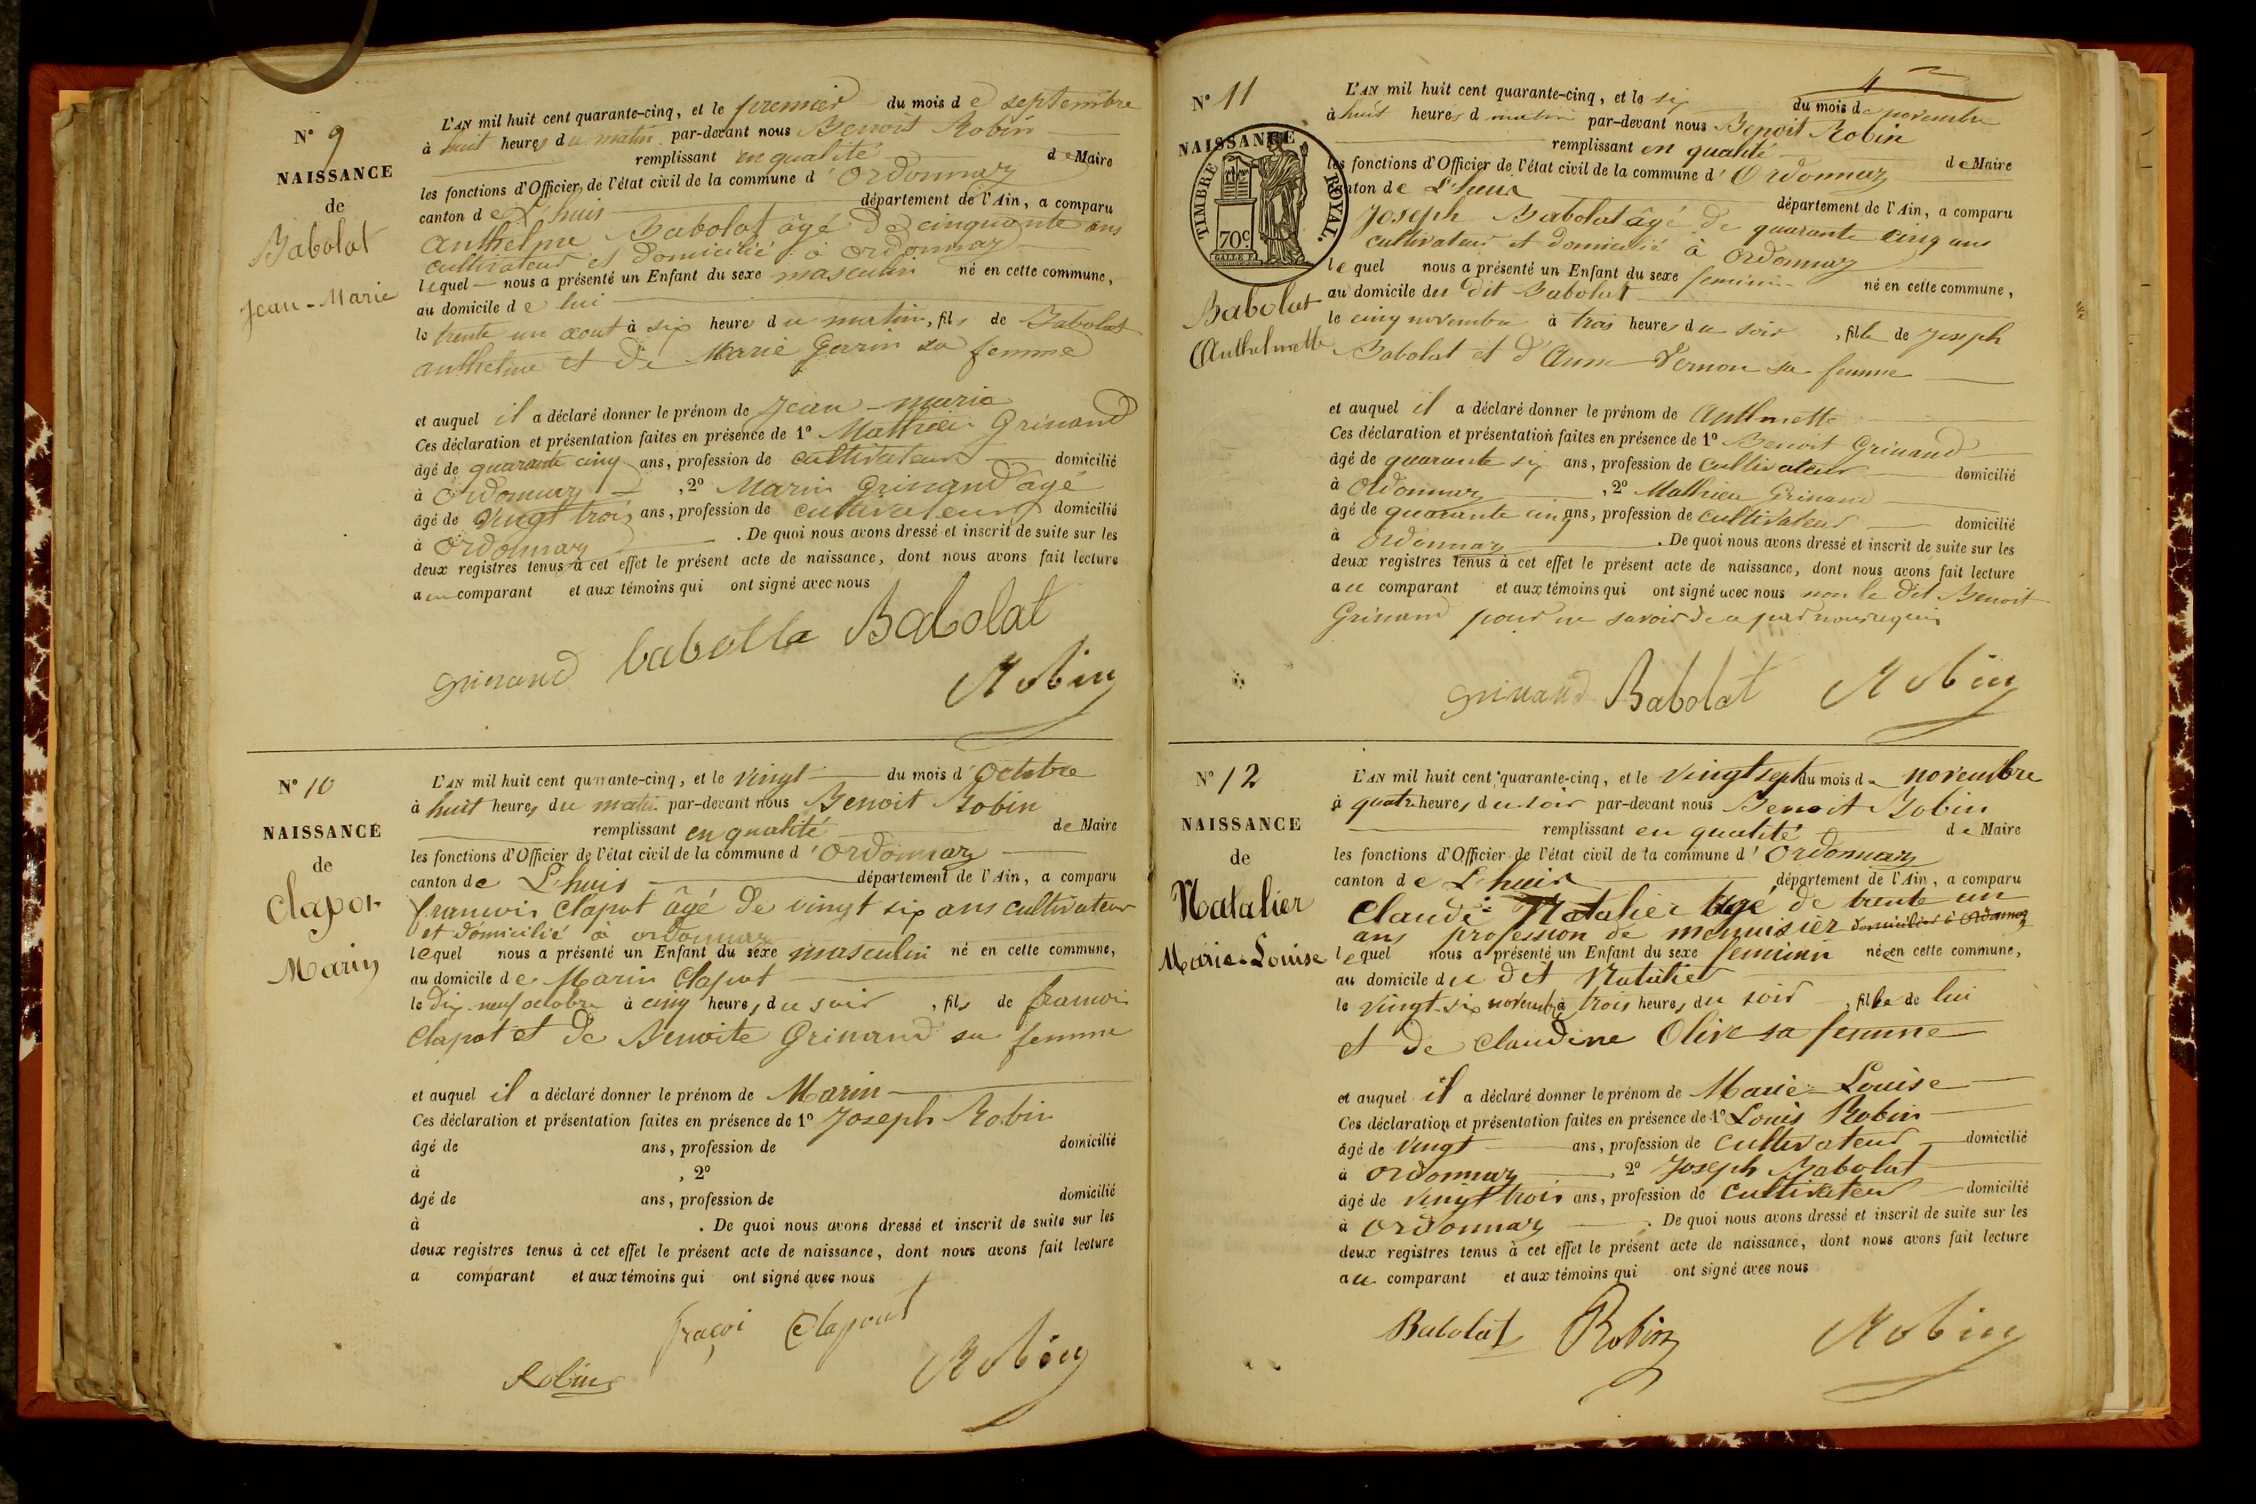 N° 9
NAISSANCE
de
Babolat
Jean-Marie
L'AN mil huit cent quarante-cinq, et le premier du mois de septembre
à huit heures du matin par-devant nous Benoit Robin
remplissant en qualité de Maire
les fonctions d'Officier de l'état civil de la commune d'Ordonnaz
canton de L'huis département de l'Ain, a comparu
anthelme Babolat âgé de cinquante ans
cultivateur et domicilié à ordonnaz
lequel nous a présenté un Enfant du sexe masculin né en cette commune,
au domicile de lui
le trente un aout à six heures du matin, fils de Babolat
anthelme et de Marie Garin sa femme
et auquel il a déclaré donner le prénom de Jean-marie
Ces déclaration et présentation faites en présence de 1° Mathieu Grinand
âgé de quarante cinq ans, profession de cultivateur domicilié
à Ordonnaz, 2° Marin Grinand âgé
âgé de vingt trois ans, profession de cultivateur domicilié
à Ordonnaz. De quoi nous avons dressé et inscrit de suite sur les
deux registres tenus à cet effet le présent acte de naissance, dont nous avons fait lecture
au comparant et aux témoins qui ont signé avec nous
grinand babolla Babolat
Robin
N° 10
NAISSANCE
de
Clapot
Marin
L'AN mil huit cent quarante-cinq, et le vingt du mois d'Octobre
à huit heures du matin par-devant nous Benoit Robin
remplissant en qualité de Maire
les fonctions d'Officier de l'état civil de la commune d'Ordonnaz
canton de L'huis département de l'Ain, a comparu
francois Clapot âgé de vingt six ans cultivateur
et domicilié à ordonnaz
lequel nous a présenté un Enfant du sexe masculin né en cette commune,
au domicile de Marin Clapot
le dix-neuf octobre à cinq heures du soir, fils de francois
Clapot et de Benoite Grinand sa femme
et auquel il a déclaré donner le prénom de Marin
Ces déclaration et présentation faites en présence de 1° Joseph Robin
âgé de ans, profession de domicilié
à , 2°
âgé de ans, profession de domicilié
à . De quoi nous avons dressé et inscrit de suite sur les
deux registres tenus à cet effet le présent acte de naissance, dont nous avons fait lecture
a comparant et aux témoins qui ont signé avec nous
fraçoi Clapout
Robin Robin
4
N° 11
NAISSANCE
TIMBRE ROYAL.
70c
Babolat
Anthelmette
L'AN mil huit cent quarante-cinq, et le six du mois de novembre
à huit heures du matin par-devant nous Benoit Robin
remplissant en qualité de Maire
les fonctions d'Officier de l'état civil de la commune d'Ordonnaz
canton de L'huis département de l'Ain, a comparu
Joseph Babolat âgé de quarante cinq ans
cultivateur et domicilié à Ordonnaz
lequel nous a présenté un Enfant du sexe feminin né en cette commune,
au domicile du dit Babolat
le cinq novembre à trois heures du soir, fille de Joseph
Babolat et d'Anne Vernou sa femme
et auquel il a déclaré donner le prénom de Anthmette
Ces déclaration et présentation faites en présence de 1° Benoit Grinand
âgé de quarante six ans, profession de cultivateur domicilié
à Ordonnaz, 2° Mathieu Grinand
âgé de quarante cinq ans, profession de cultivateur domicilié
à Ordonnaz. De quoi nous avons dressé et inscrit de suite sur les
deux registres tenus à cet effet le présent acte de naissance, dont nous avons fait lecture
au comparant et aux témoins qui ont signé avec nous non le dit Benoit
Grinand pour ne savoir de a par nous requis
grinand Babolat Robin
N° 12
NAISSANCE
de
Natalier
Marie-Louise
L'AN mil huit cent quarante-cinq, et le vingt sept du mois de novembre
à quatre heures du soir par-devant nous Benoit Robin
remplissant en qualité de Maire
les fonctions d'Officier de l'état civil de la commune d'Ordonnaz
canton de L'huis département de l'Ain, a comparu
Claude Natalier âgé de trente un
ans profession de menuisier domicilié à Ordonnaz
lequel nous a présenté un Enfant du sexe feminin née en cette commune,
au domicile du dit Natalier
le vingt-six novembre à trois heures du soir, fille de lui
et de Claudine Olive sa femme
et auquel il a déclaré donner le prénom de Marie-Louise
Ces déclaration et présentation faites en présence de 1° Louis Robin
âgé de vingt ans, profession de cultivateur domicilié
à Ordonnaz, 2° Joseph Babolat
âgé de vingt trois ans, profession de cultivateur domicilié
à Ordonnaz. De quoi nous avons dressé et inscrit de suite sur les
deux registres tenus à cet effet le présent acte de naissance, dont nous avons fait lecture
au comparant et aux témoins qui ont signé avec nous
Babolat Robin Robin